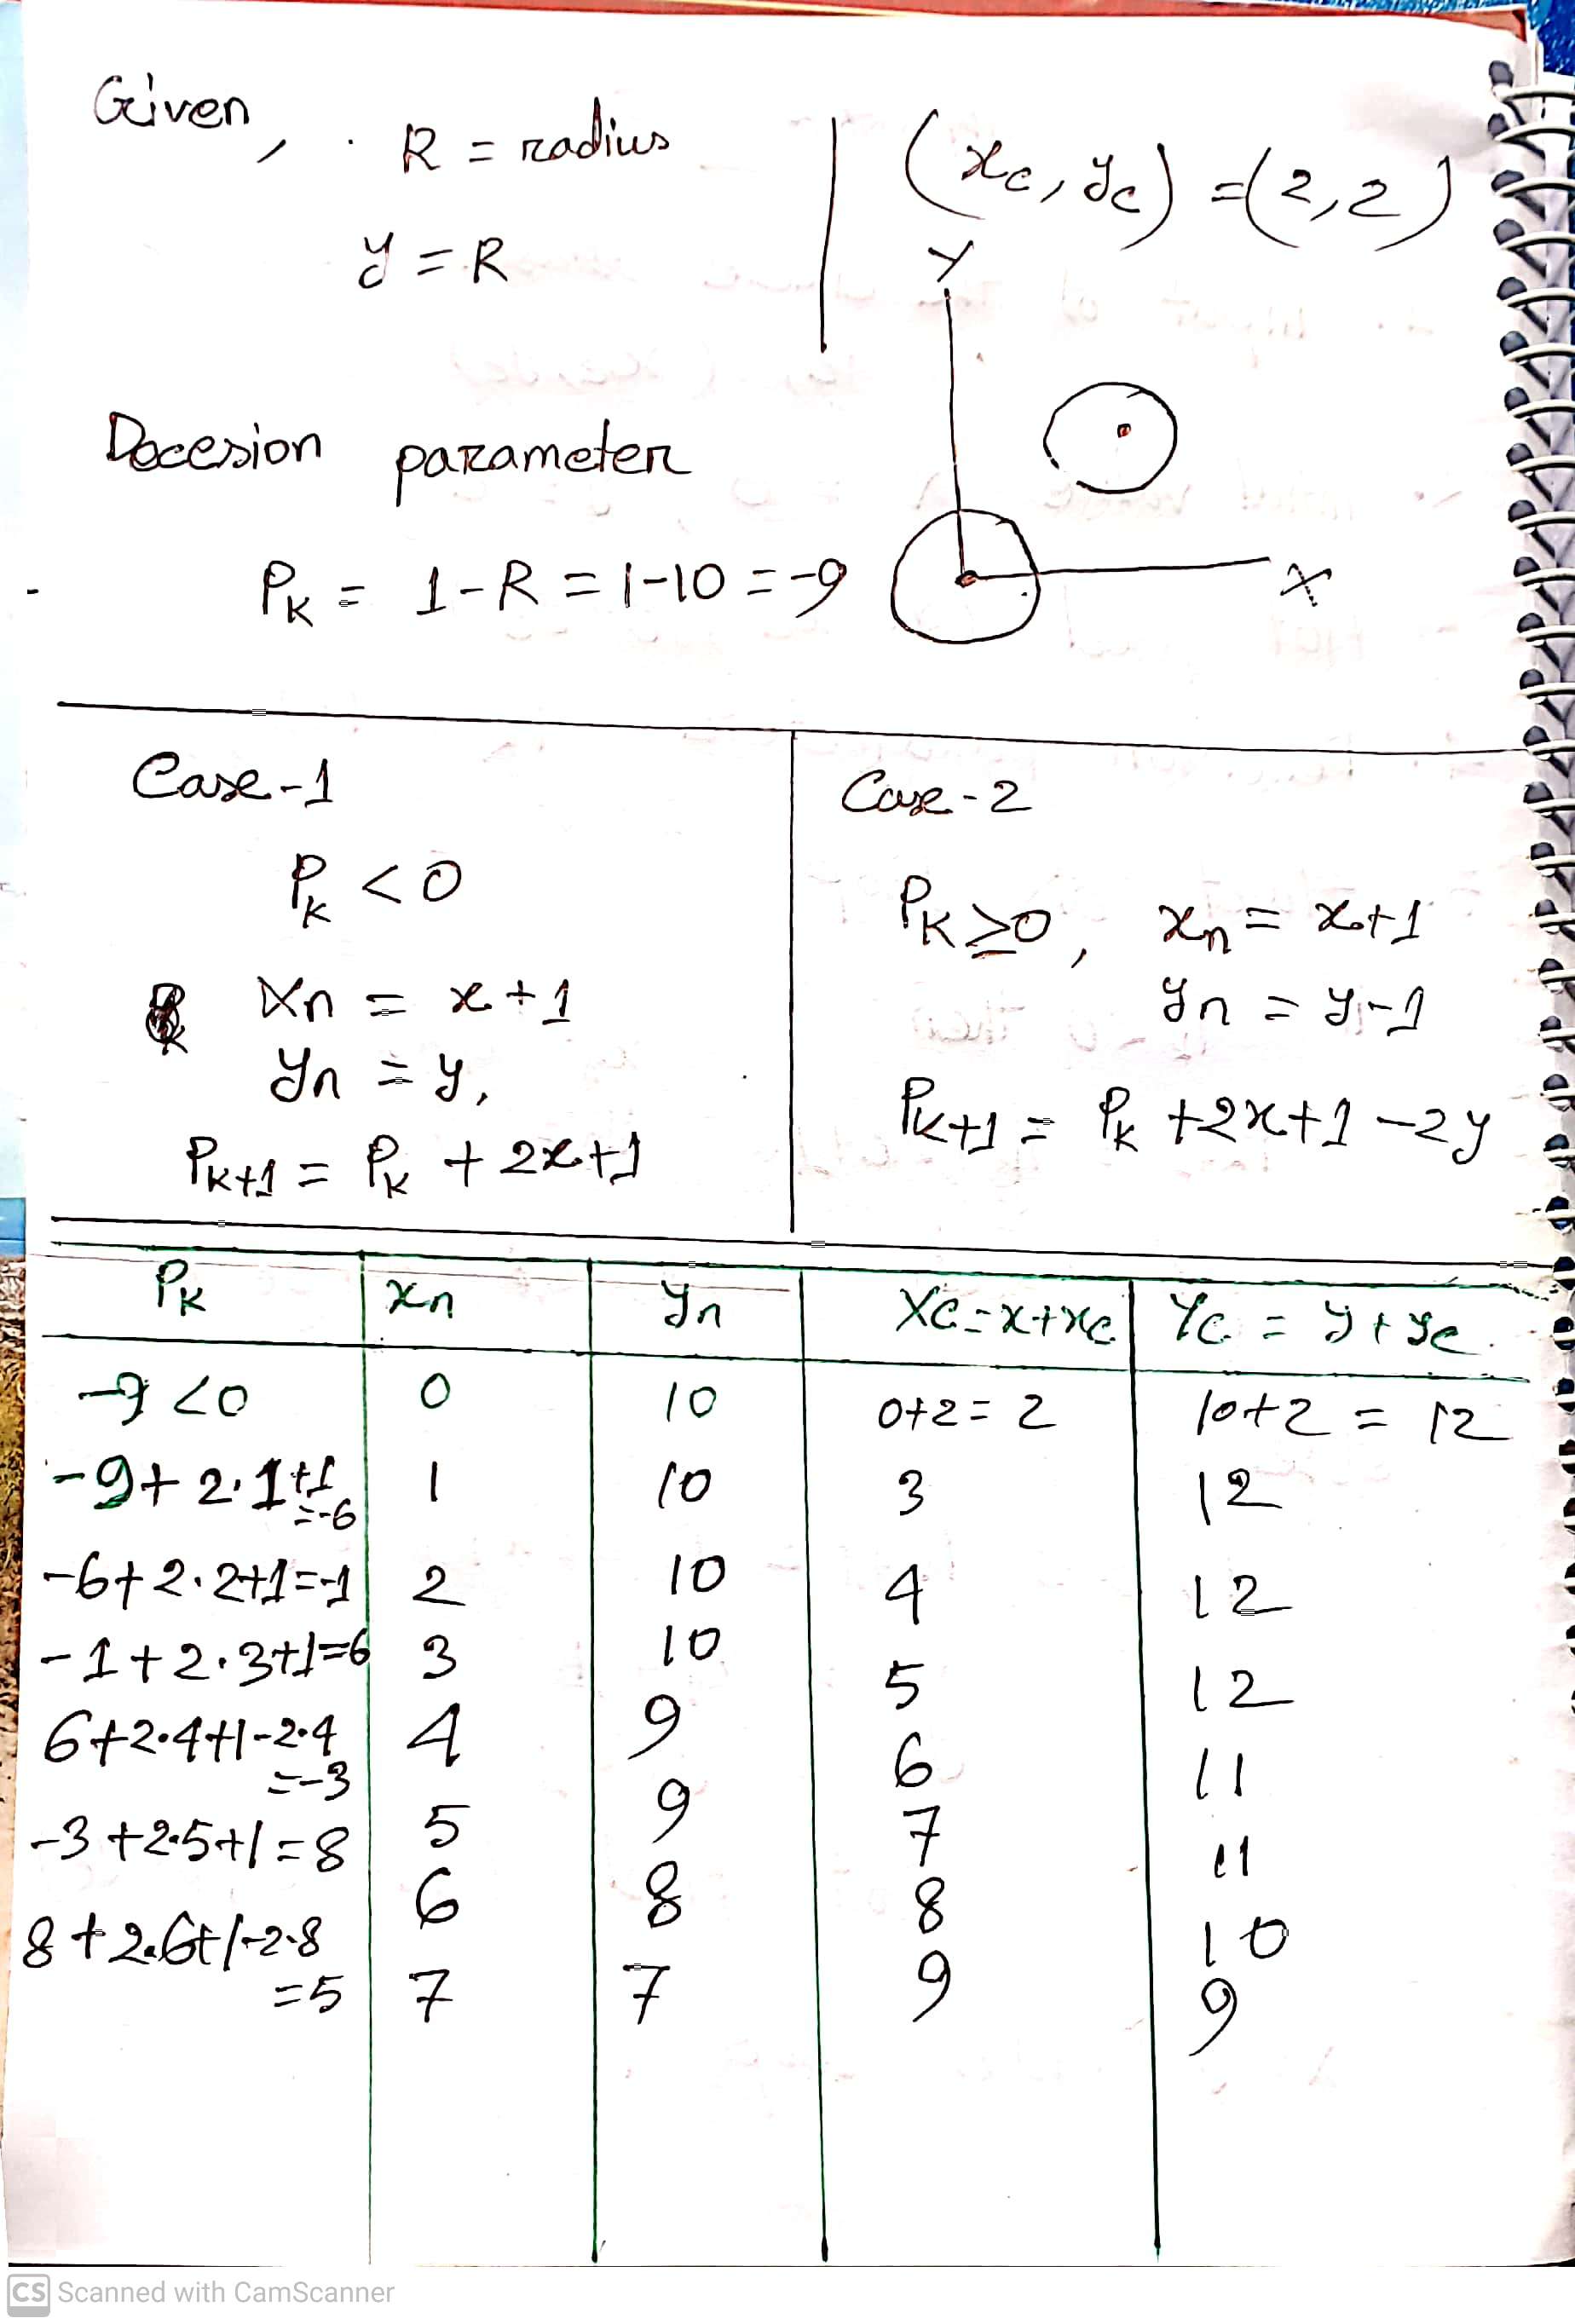 Given, R = radius
(xc, yc) = (2,2)
y = R
Y
Decesion parameter
PK = 1-R = 1-10 = -9
X
Case-1
PK <0
Xn = x+1
yn = y,
PK+1 = PK + 2x+1
Case-2
PK ≥0, xn = x+1
yn = y-1
PK+1 = PK +2x+1 -2y
PK xn yn XC=x+xc YC = y+yc
-9 <0 0 10 0+2=2 10+2 = 12
-9+2.1+1=-6 1 10 3 12
-6+2.2+1=-1 2 10 4 12
-1+2.3+1=6 3 10 5 12
6+2.4+1-2.9 4 9 6 11
=-3
-3+2.5+1=8 5 9 7 11
8+2.6+1-2.8 6 8 8 10
=5 7 7 9 9
CS Scanned with CamScanner